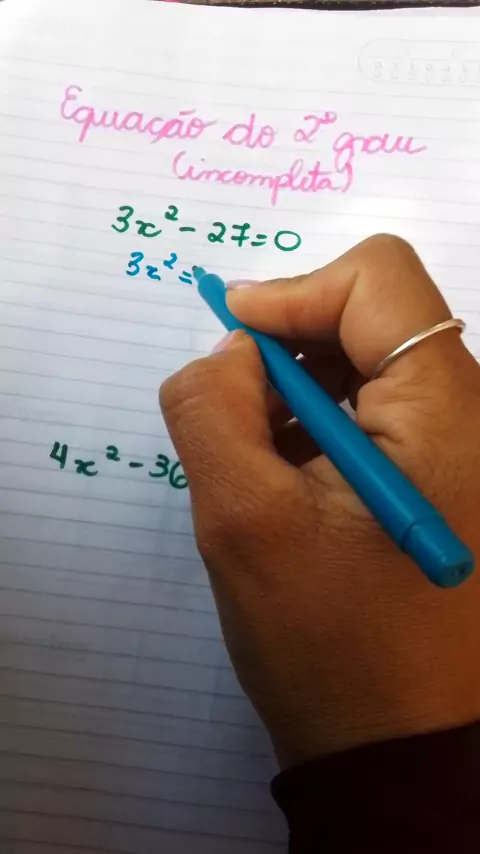 Equação do 2º grau
(incompleta)
3x² - 27 = 0
3x² =
4x² - 36